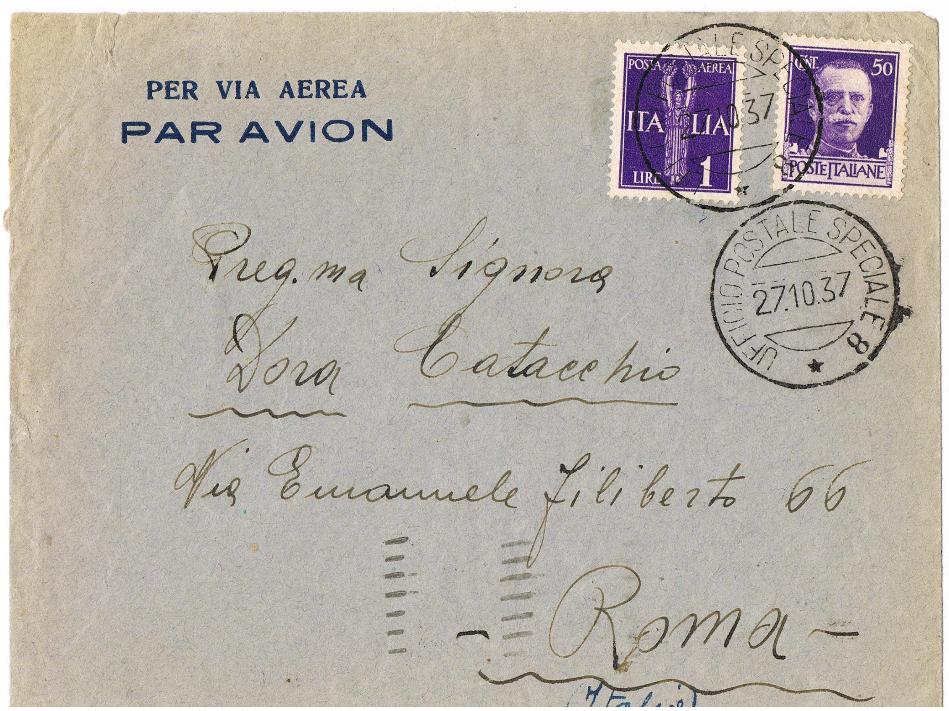 PER VIA AEREA
PAR AVION
POSTA AEREA
ITALIA
LIRE 1
CENT. 50
POSTE ITALIANE
UFFICIO POSTALE SPECIALE 8
27.10.37
UFFICIO POSTALE SPECIALE 8
27.10.37
Preg.ma Signora
Dora Catacchio
Via Emanuele Filiberto 66
- Roma -
(Italia)